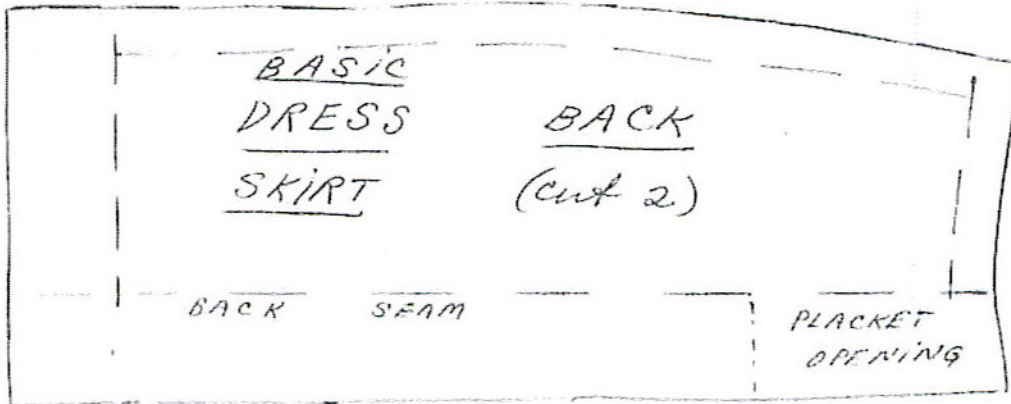 BASIC
DRESS
SKIRT
BACK
(cut 2)
BACK SEAM
PLACKET
OPENING